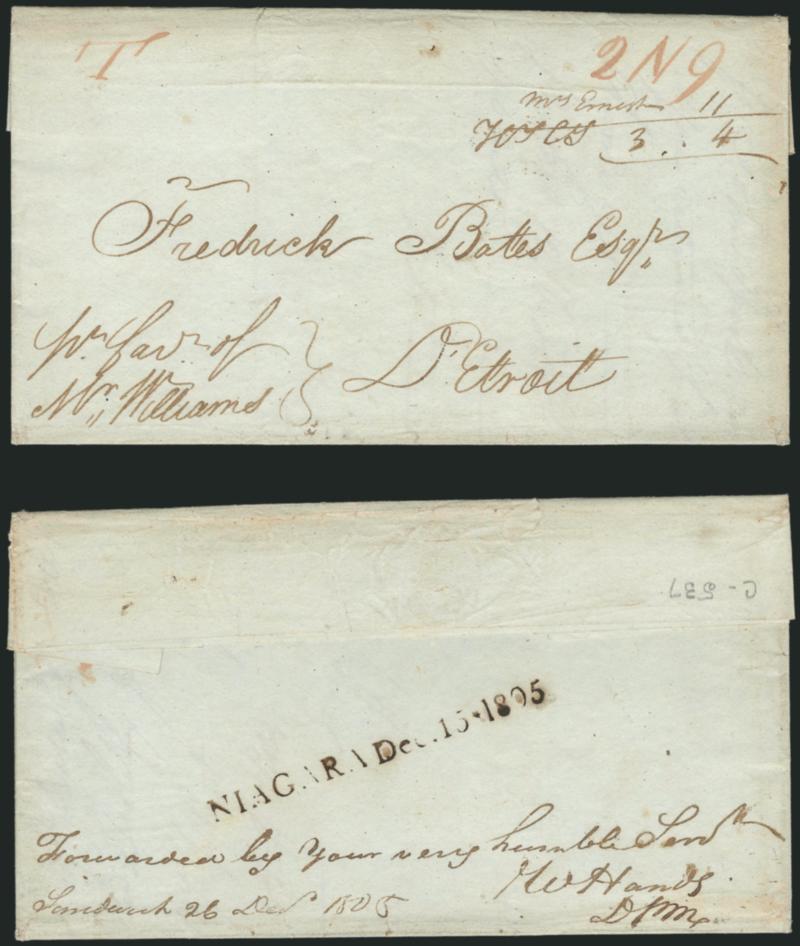 T 2N9
Mrs Ernest 11
3 .. 4
Fredrick Bates Esqr.
pr. favr. of
Mr,, Williams
D'Etroit
C-537
NIAGARA Dec. 15. 1805
Forwarded by Your very humble Servt
Wm Hands
Sandwich 26 Decr 1805
DPM